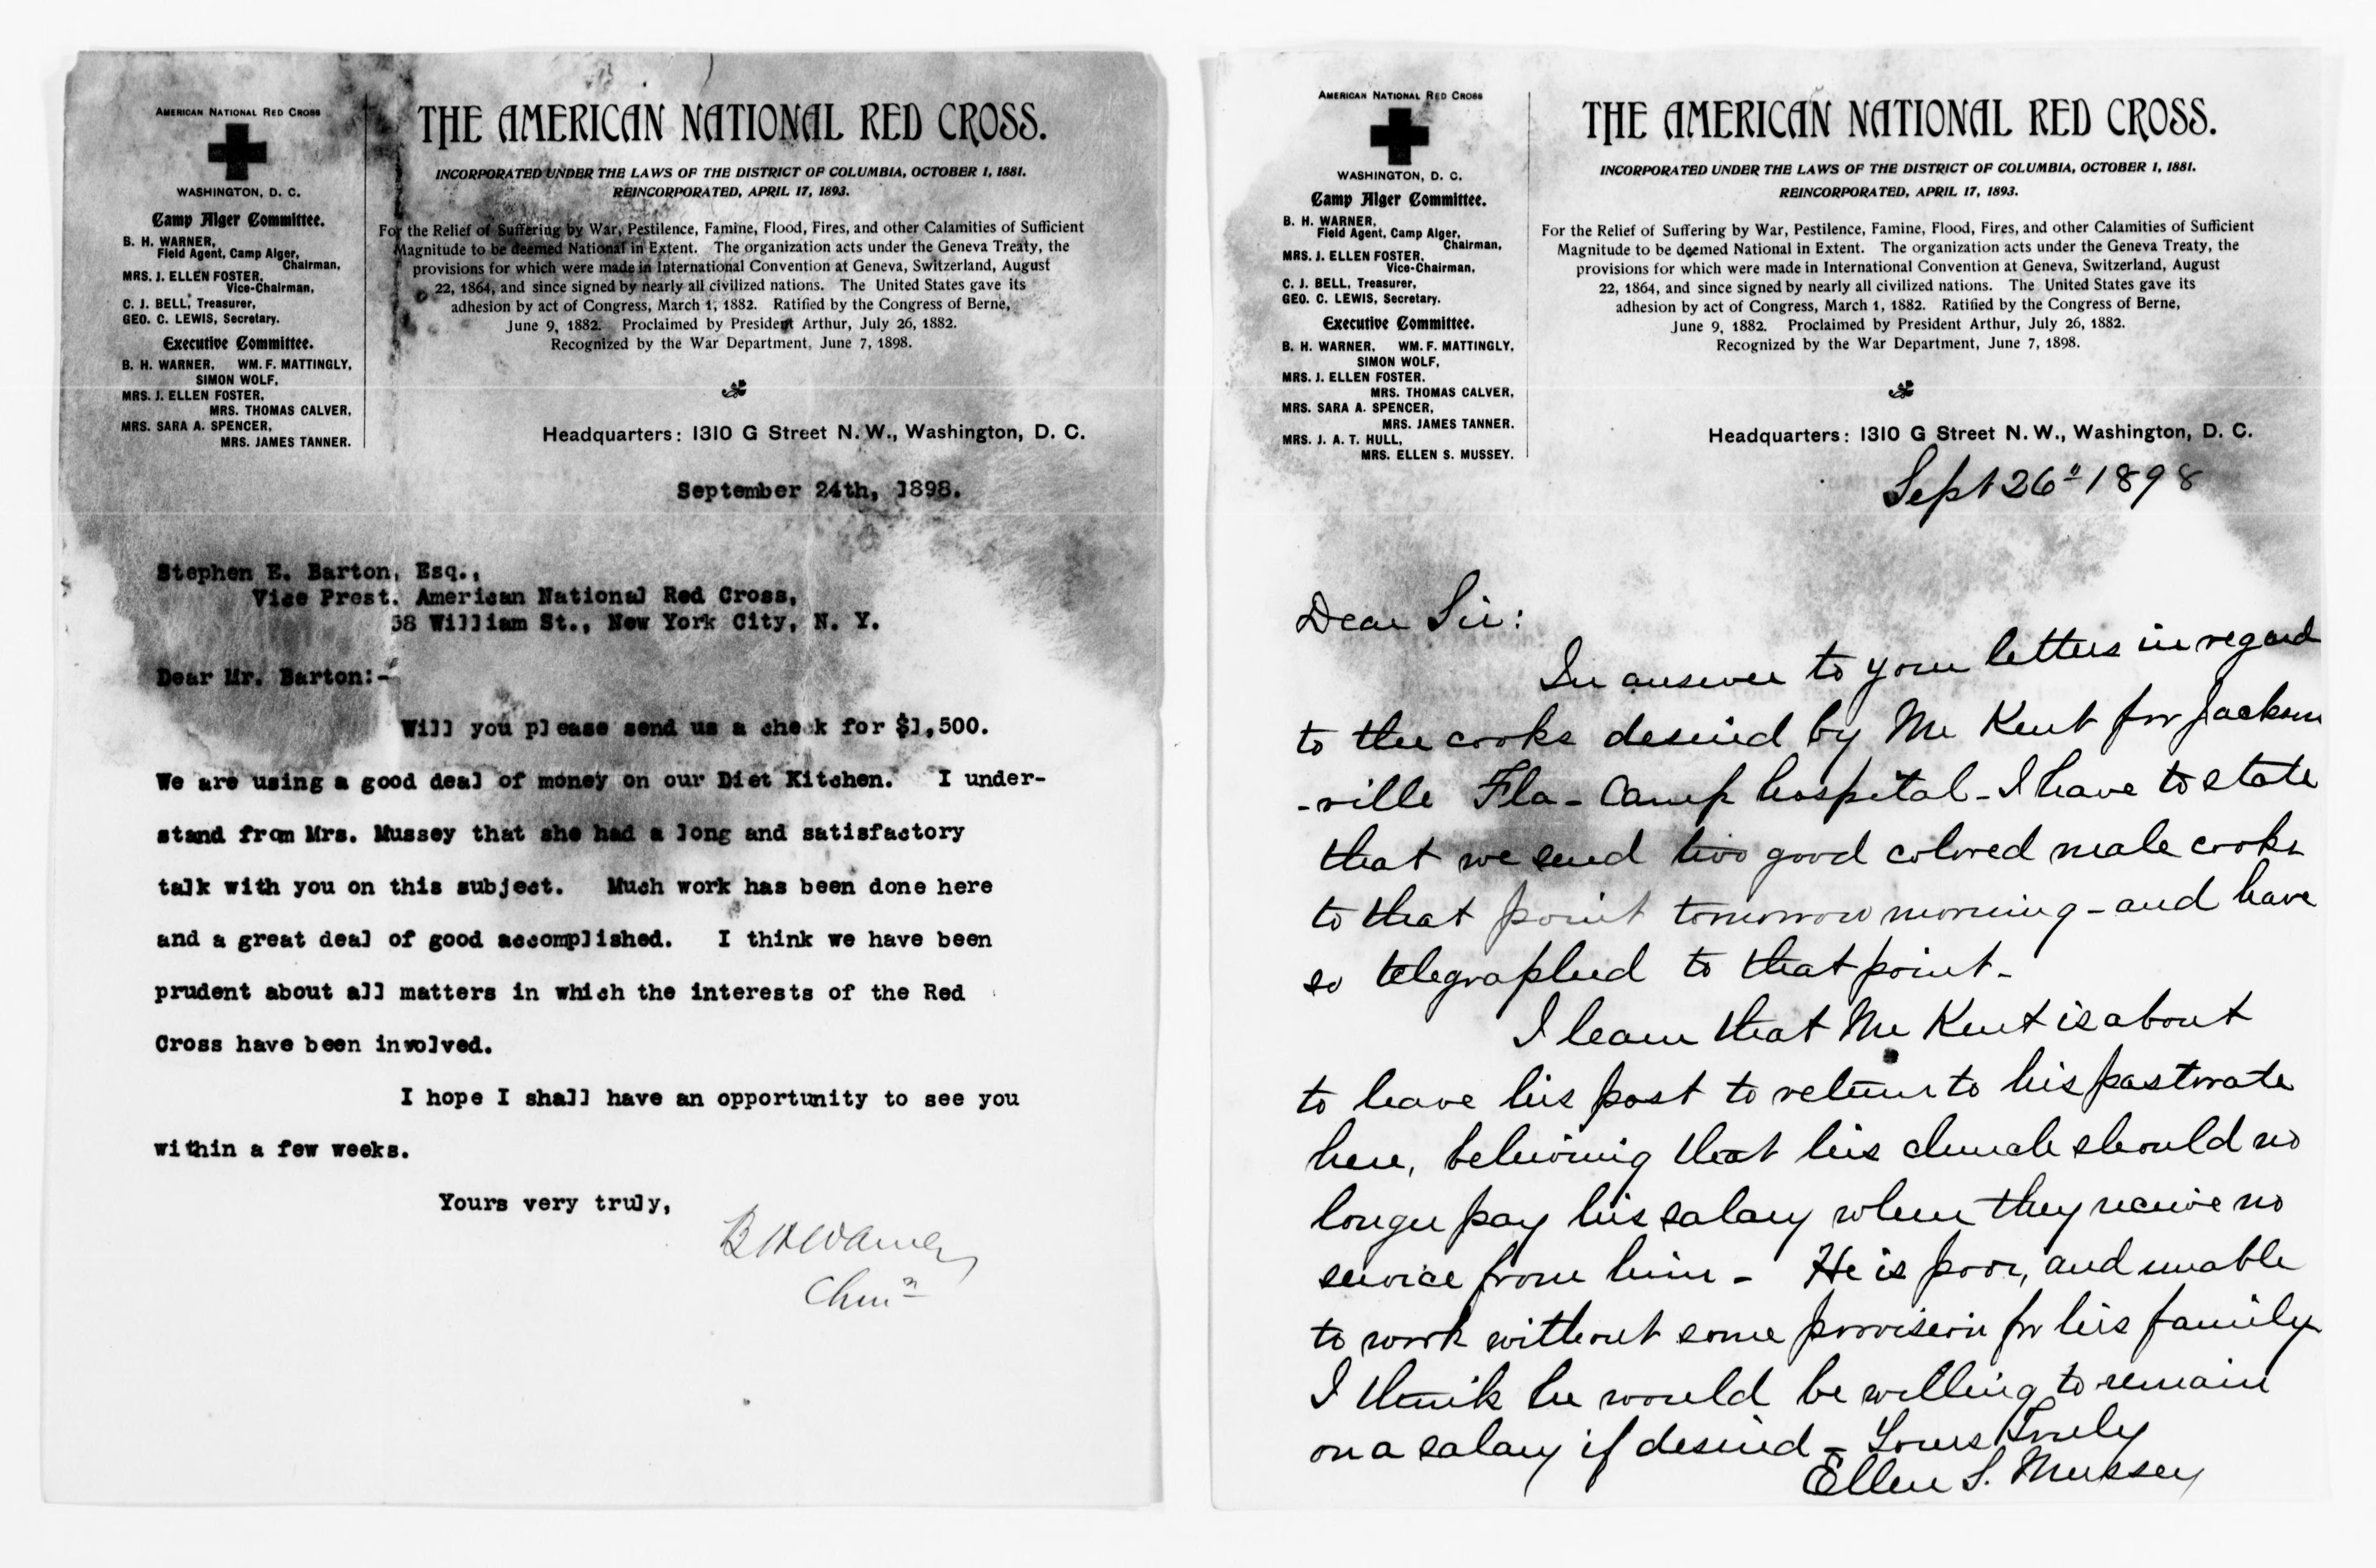 AMERICAN NATIONAL RED CROSS
WASHINGTON, D. C.
Camp Alger Committee.
B. H. WARNER,
Field Agent, Camp Alger,
Chairman,
MRS. J. ELLEN FOSTER,
Vice-Chairman,
C. J. BELL, Treasurer,
GEO. C. LEWIS, Secretary.
Executive Committee.
B. H. WARNER, WM. F. MATTINGLY,
SIMON WOLF,
MRS. J. ELLEN FOSTER,
MRS. THOMAS CALVER,
MRS. SARA A. SPENCER,
MRS. JAMES TANNER.
THE AMERICAN NATIONAL RED CROSS.
INCORPORATED UNDER THE LAWS OF THE DISTRICT OF COLUMBIA, OCTOBER 1, 1881.
REINCORPORATED, APRIL 17, 1893.
For the Relief of Suffering by War, Pestilence, Famine, Flood, Fires, and other Calamities of Sufficient
Magnitude to be deemed National in Extent. The organization acts under the Geneva Treaty, the
provisions for which were made in International Convention at Geneva, Switzerland, August
22, 1864, and since signed by nearly all civilized nations. The United States gave its
adhesion by act of Congress, March 1, 1882. Ratified by the Congress of Berne,
June 9, 1882. Proclaimed by President Arthur, July 26, 1882.
Recognized by the War Department, June 7, 1898.
Headquarters: 1310 G Street N. W., Washington, D. C.
September 24th, 1898.
Stephen E. Barton, Esq.,
Vice Prest. American National Red Cross,
58 William St., New York City, N. Y.
Dear Mr. Barton:-
Will you please send us a check for $1,500.
We are using a good deal of money on our Diet Kitchen. I under-
stand from Mrs. Mussey that she had a long and satisfactory
talk with you on this subject. Much work has been done here
and a great deal of good accomplished. I think we have been
prudent about all matters in which the interests of the Red
Cross have been involved.
I hope I shall have an opportunity to see you
within a few weeks.
Yours very truly,
B H Warner
Chmn
AMERICAN NATIONAL RED CROSS
WASHINGTON, D. C.
Camp Alger Committee.
B. H. WARNER,
Field Agent, Camp Alger,
Chairman,
MRS. J. ELLEN FOSTER,
Vice-Chairman,
C. J. BELL, Treasurer,
GEO. C. LEWIS, Secretary.
Executive Committee.
B. H. WARNER, WM. F. MATTINGLY,
SIMON WOLF,
MRS. J. ELLEN FOSTER.
MRS. THOMAS CALVER,
MRS. SARA A. SPENCER,
MRS. JAMES TANNER.
MRS. J. A. T. HULL,
MRS. ELLEN S. MUSSEY.
THE AMERICAN NATIONAL RED CROSS.
INCORPORATED UNDER THE LAWS OF THE DISTRICT OF COLUMBIA, OCTOBER 1, 1881.
REINCORPORATED, APRIL 17, 1893.
For the Relief of Suffering by War, Pestilence, Famine, Flood, Fires, and other Calamities of Sufficient
Magnitude to be deemed National in Extent. The organization acts under the Geneva Treaty, the
provisions for which were made in International Convention at Geneva, Switzerland, August
22, 1864, and since signed by nearly all civilized nations. The United States gave its
adhesion by act of Congress, March 1, 1882. Ratified by the Congress of Berne,
June 9, 1882. Proclaimed by President Arthur, July 26, 1882.
Recognized by the War Department, June 7, 1898.
Headquarters: 1310 G Street N. W., Washington, D. C.
Sept 26" 1898
Dear Sir:
In answer to your letters in regard
to the cooks desired by Mr Kent for Jackson
-ville Fla - Camp hospital - I have to state
that we send two good colored male cooks
to that point tomorrow morning - and have
so telegraphed to that point -
I learn that Mr Kent is about
to leave his post to return to his pastorate
here, believing that his church should no
longer pay his salary when they receive no
service from him - He is poor, and unable
to work without some provision for his family
I think he would be willing to remain
on a salary if desired - Yours Truly
Ellen S. Mussey